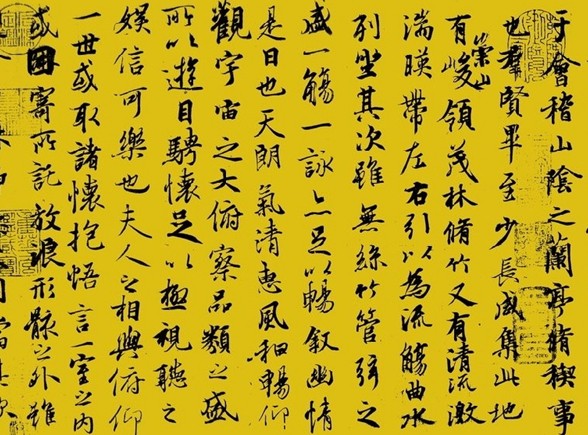 于會稽山陰之蘭亭脩稧事
也羣賢畢至少長咸集此地
有崇山峻領茂林脩竹又有清流激
湍暎帶左右引以為流觴曲水
列坐其次雖無絲竹管弦之
盛一觴一詠亦足以暢敘幽情
是日也天朗氣清惠風和暢仰
觀宇宙之大俯察品類之盛
所以遊目騁懷足以極視聽之
娛信可樂也夫人之相與俯仰
一世或取諸懷抱悟言一室之內
或因寄所託放浪形骸之外雖